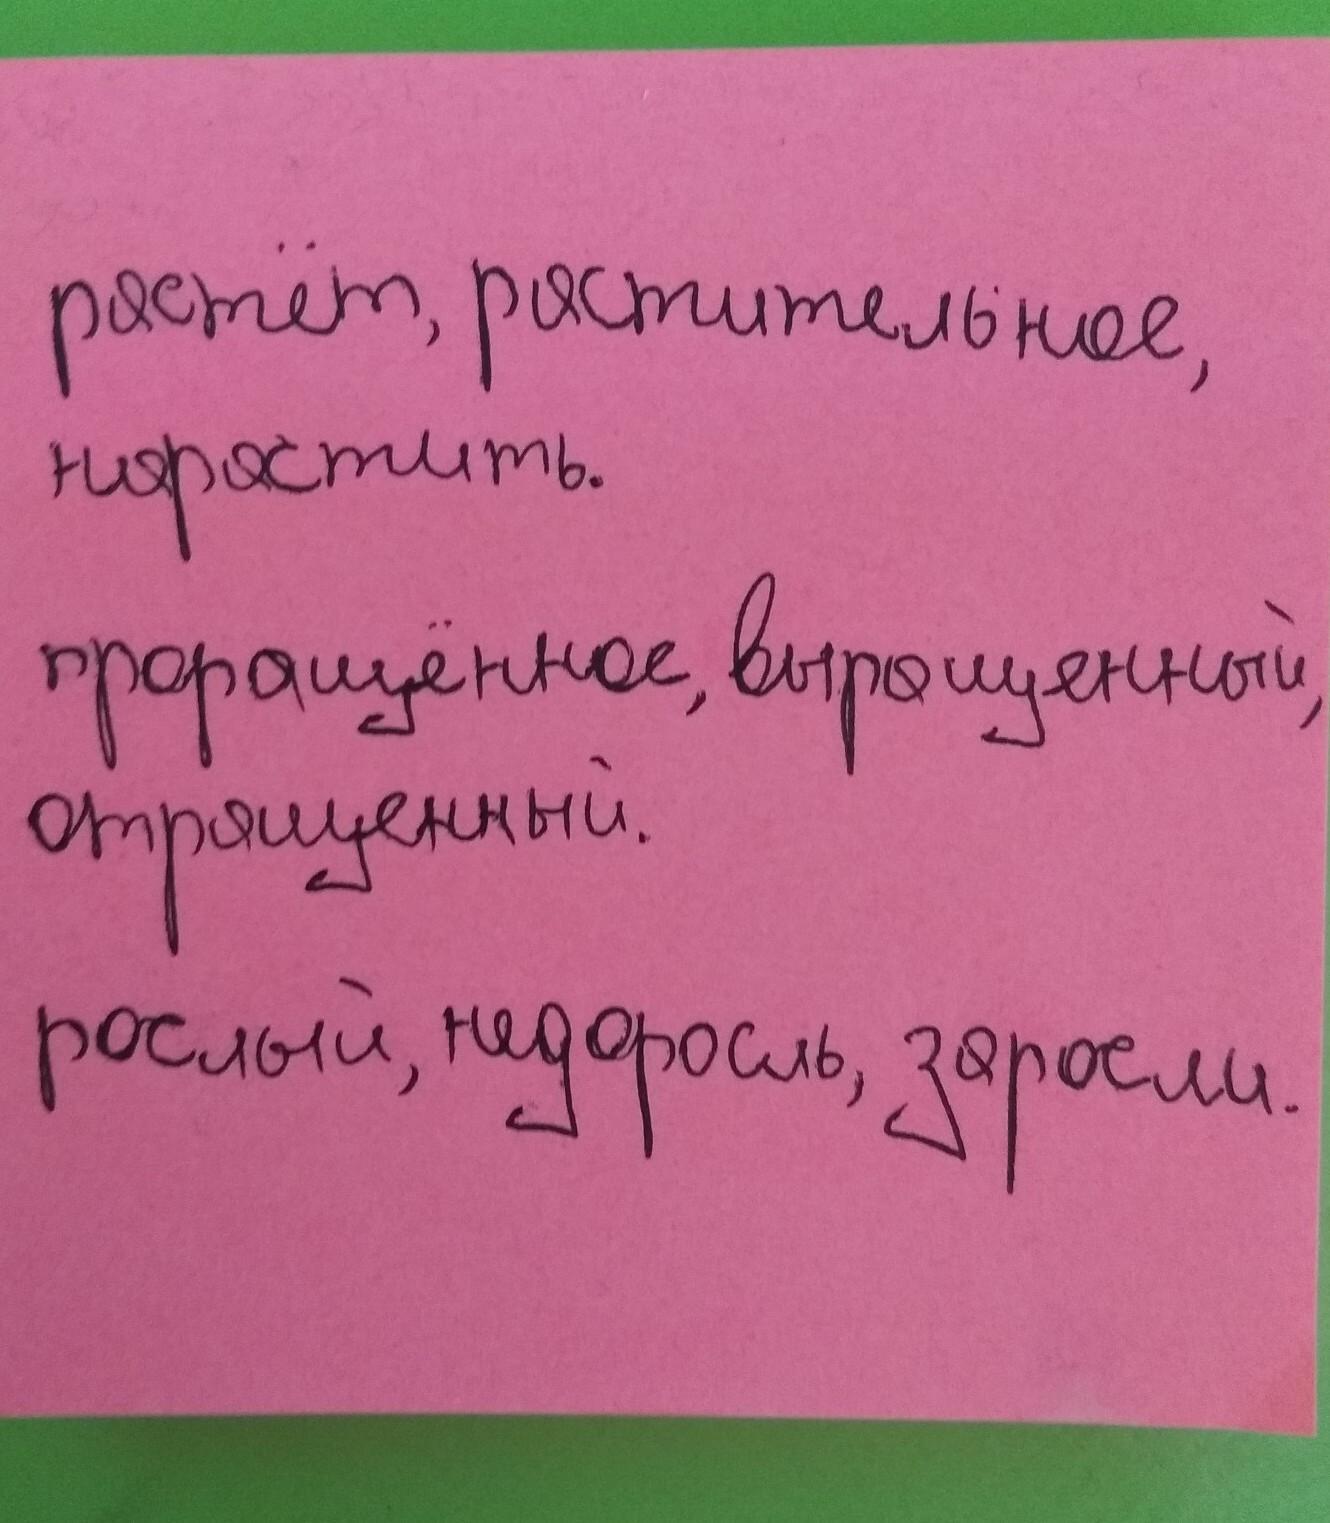 растёт, растительное,
нарастить.
проращённое, выращенный,
отращенный.
рослый, недоросль, заросли.